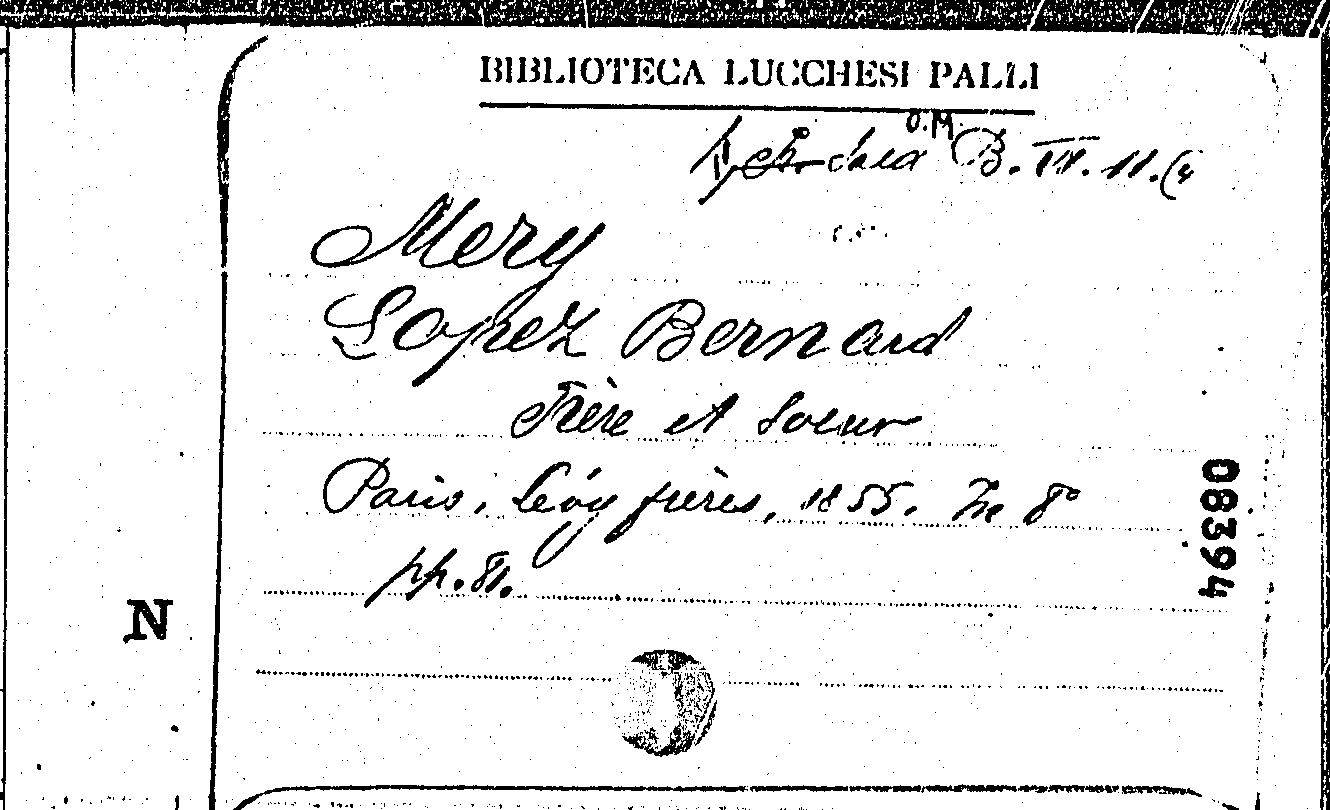 BIBLIOTECA LUCCHESI PALLI
O.M.
Sala B. VI. 11.(4
Mery
Lopez Bernard
Frère et Soeur
Paris, Lévy frères, 1855. In 8°
pp. 81.
08394
N